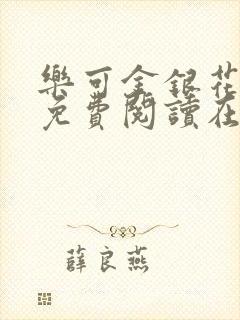 樂可金銀花
免費閱讀在
薛良燕